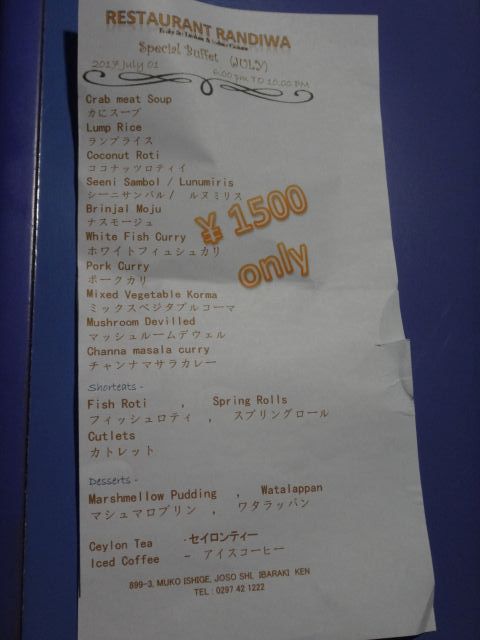 RESTAURANT RANDIWA
Special Buffet (JULY)
2017 July 01
6.00 pm TO 10.00 PM
Crab meat Soup
かにスープ
Lump Rice
ランプライス
Coconut Roti
ココナッツロティイ
Seeni Sambol / Lunumiris
シーニサンバル / ルヌミリス
Brinjal Moju
ナスモージュ
¥ 1500
only
White Fish Curry
ホワイトフィュシュカリ
Pork Curry
ポークカリ
Mixed Vegetable Korma
ミックスベジタブルコーマ
Mushroom Devilled
マッシュルームデウェル
Channa masala curry
チャンナマサラカレー
Shorteats -
Fish Roti , Spring Rolls
フィッシュロティ , スプリングロール
Cutlets
カトレット
Desserts -
Marshmellow Pudding , Watalappan
マシュマロプリン , ワタラッパン
Ceylon Tea - セイロンティー
Iced Coffee – アイスコーヒー
899-3, MUKO ISHIGE, JOSO SHI, IBARAKI KEN
TEL : 0297 42 1222